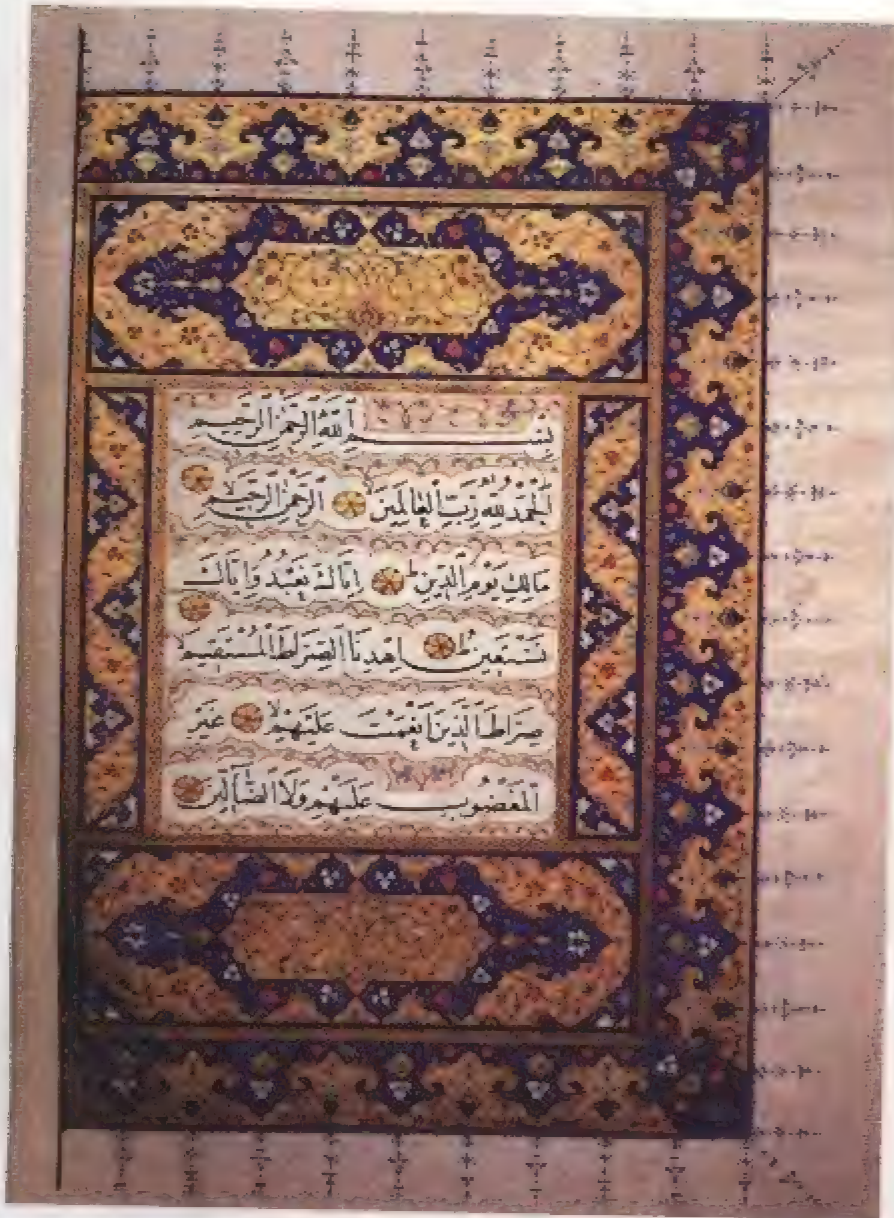 بِسْمِ اللّٰهِ الرَّحْمٰنِ الرَّحِيمِ
اَلْحَمْدُ لِلّٰهِ رَبِّ الْعَالَمِينَ الرَّحْمٰنِ الرَّحِيمِ
مَالِكِ يَوْمِ الدِّينِ اِيَّاكَ نَعْبُدُ وَاِيَّاكَ
نَسْتَعِينُ اِهْدِنَا الصِّرَاطَ الْمُسْتَقِيمَ
صِرَاطَ الَّذِينَ اَنْعَمْتَ عَلَيْهِمْ غَيْرِ
الْمَغْضُوبِ عَلَيْهِمْ وَلَا الضَّالِّينَ